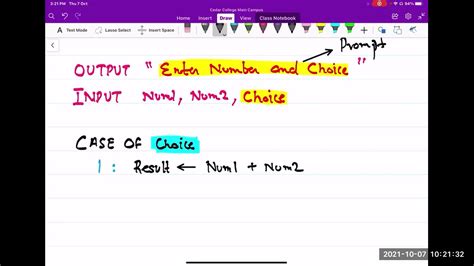 3:21 PM Thu 7 Oct
Cedar College Main Campus
Home Insert Draw View Class Notebook
Text Mode Lasso Select Insert Space
Prompt
OUTPUT "Enter Number and Choice"
INPUT Num1, Num2, Choice
CASE OF Choice
1 : Result ← Num1 + Num2
2021-10-07 10:21:32